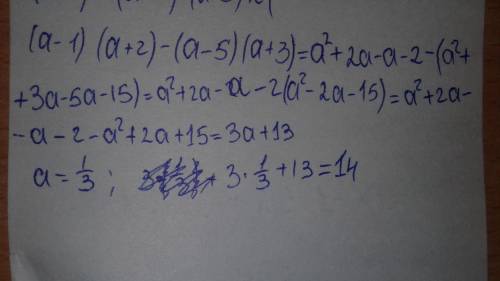 (a-1)(a+2)-(a-5)(a+3)=a²+2a-a-2-(a²+
+3a-5a-15)=a²+2a-a-2(a²-2a-15)=a²+2a-
-a-2-a²+2a+15=3a+13
a=1/3; 3·1/3+13=14